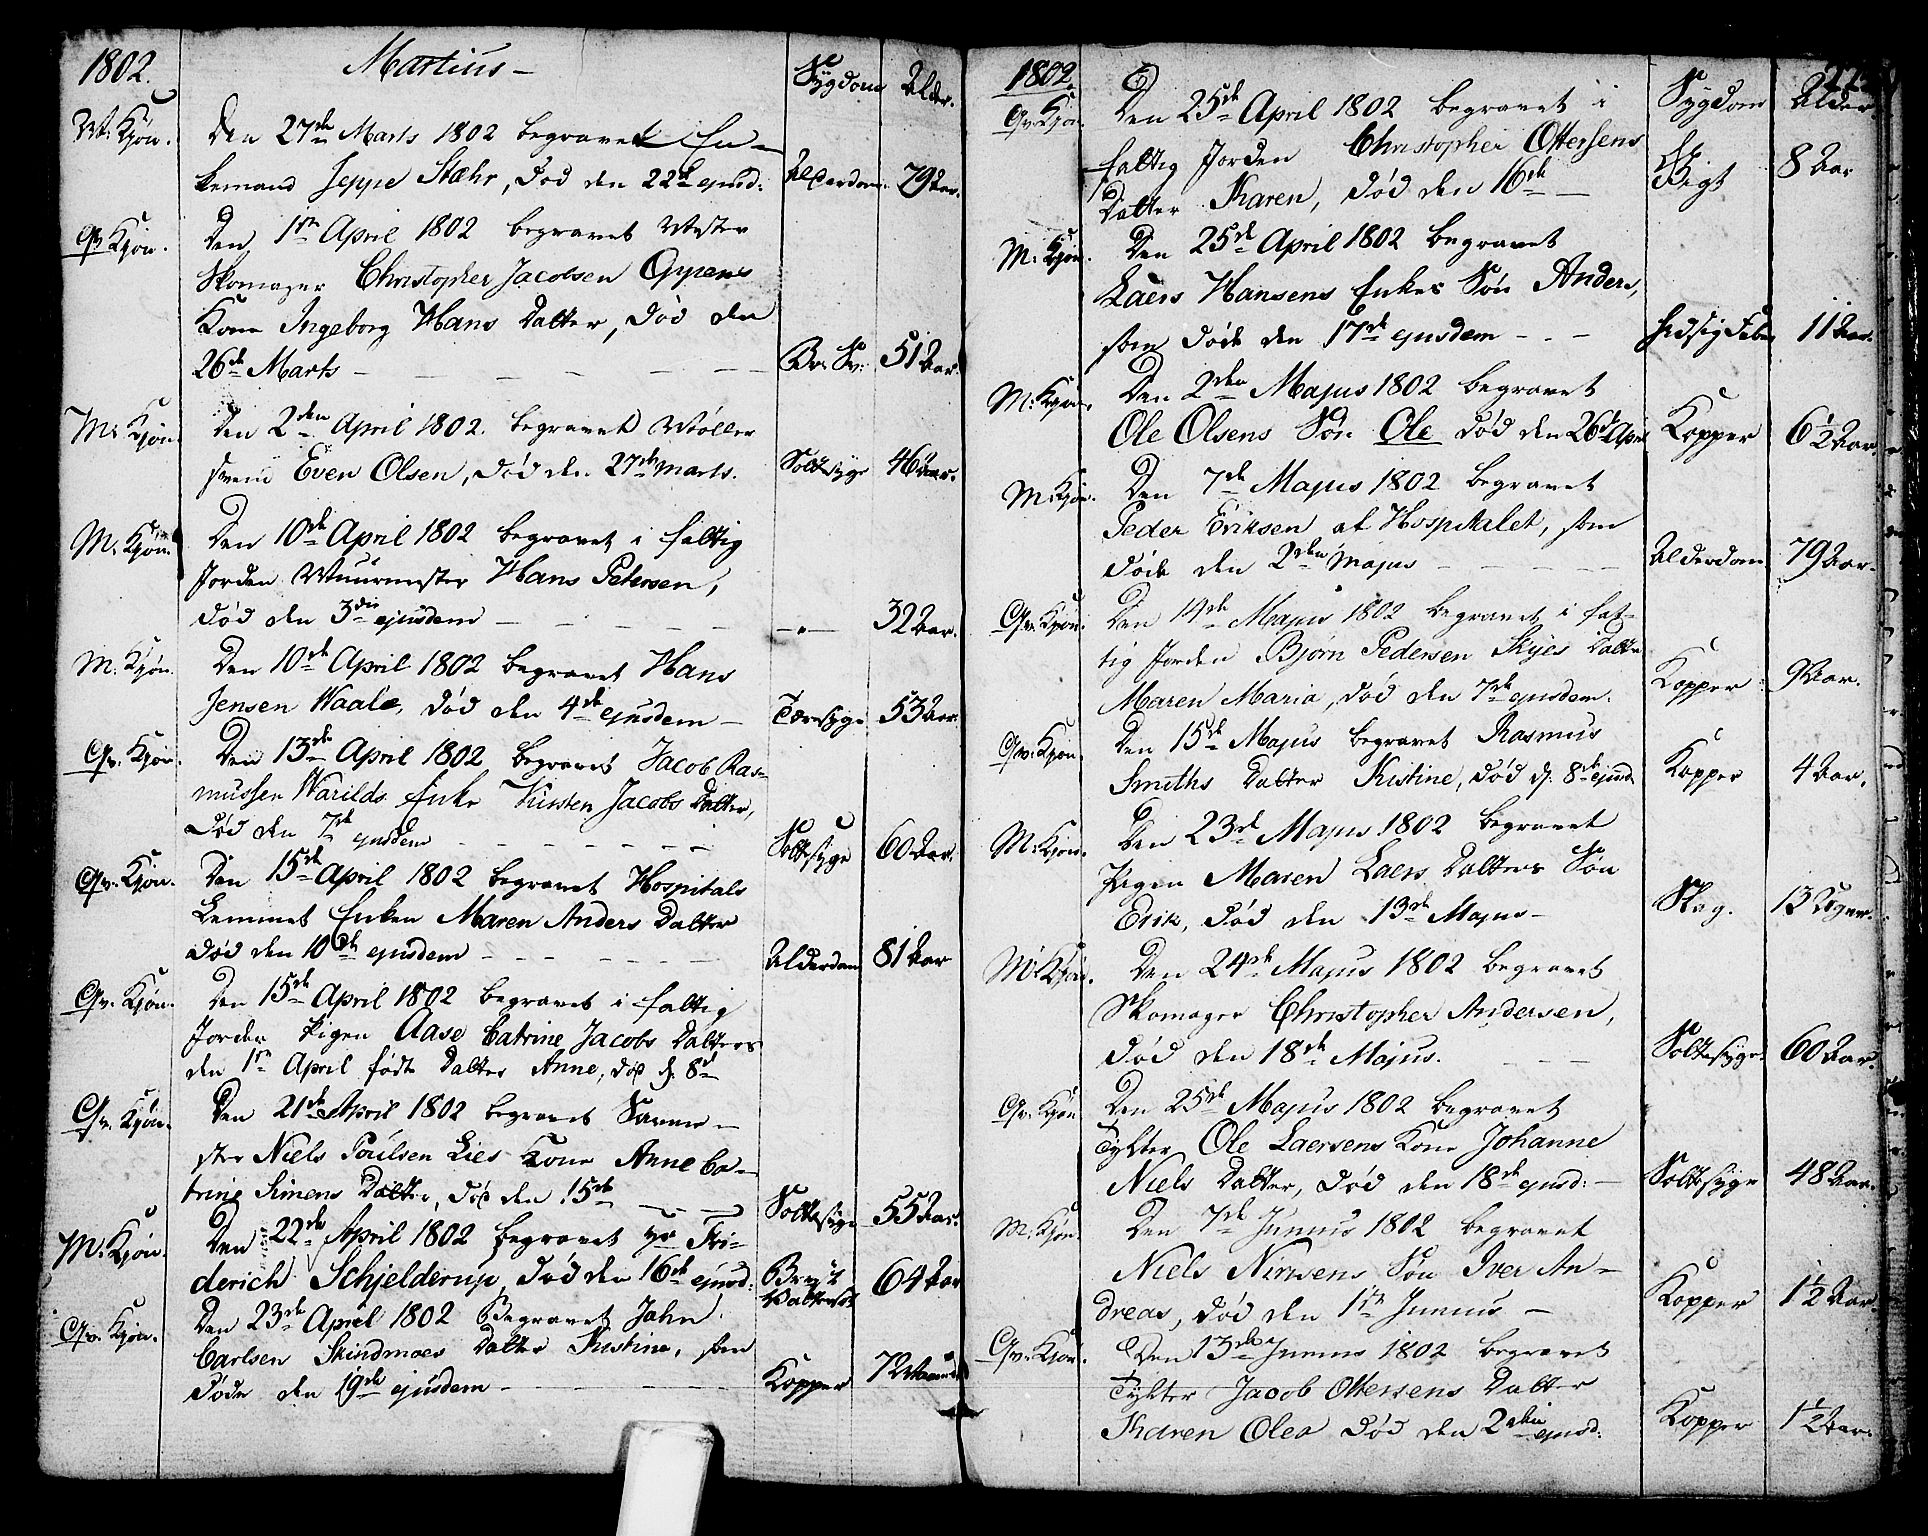 1802. Martius – Sygdom Alder.
M: Kjøn. Den 27de Marts 1802 begravet En-
kemand Jeppe Stæhr, død den 22de ejusd: Alderdom. 79 Aar.
Qv. Kjøn. Den 1ste April 1802 begravet Mester
Skomager Christopher Jacobsen Gypens
Kone Ingeborg Hans Datter, død den
26de Marts – – – – – – Br: Sv: 51 Aar.
M: Kjøn Den 2den April 1802. begravet Møller
svend Even Olsen, død den 27de Marts. Sottesyge 46 Aar.
M. Kjøn. Den 10de April 1802 begravet i fattig
Jorden Muurmester Hans Petersen,
død den 3die ejusdem – – – – – –"– 32 Aar.
M. Kjøn. Den 10de April 1802 begravet Hans
Jensen Waale, død den 4de ejusdem – Tæresyge 53 Aar.
Qv. Kjøn. Den 13de April 1802 begravet Jacob Ras-
mussen Warilds Enke Kirsten Jacobs Datter,
død den 7de ejusdem – – – – – – Sottesyge 60 Aar.
Qv. Kjøn. Den 15de April 1802 begravet Hospitals
Lemmet Enken Maren Anders Datter
død den 10de ejusdem – – – – – – Alderdom 81 Aar
Qv. Kjøn. Den 15de April 1802 begravet i fattig
Jorden Pigen Aase Catrine Jacobs Datters
den 1ste April fødte Datter Anne, død d: 8de
Qv. Kjøn. Den 21de April 1802 begravet
Niels Poulsen Lies Kone Anne Ca-
trine Simens Datter, død den 15de – – – Sottesyge 55 Aar.
M. Kjøn. Den 22de April 1802 begravet Fri-
derich Schjelderup, død den 16de ejusd: Bryst 64 Aar
Qv. Kjøn. Den 23de April 1802 Begravet Jahn
Carlsen Skindmoes Datter Kistine, som
døde den 19de ejusdem – – – – – – Kopper 72
1802. Sygdom Alder.
Qv. Kjøn. Den 25de April 1802 begravet i
fattig Jorden Christopher Ottersens
Datter Karen, død den 16de – Gigt 8 Aar
M: Kjøn. Den 25de April 1802 begravet
Laers Hansens Enkes Søn Anders,
som døde den 17de ejusdem – – – hidsig Feber 11 Aar.
M: Kjøn. Den 2den Majus 1802 begravet
Ole Olsens Søn Ole død den 26de April Kopper 6½ Aar.
M: Kjøn. Den 7de Majus 1802 begravet
Peder Eriksen af Hospitalet, som
døde den 2den Majus – – – – – Alderdom 79 Aar.
Qv. Kjøn. Den 14de Majus 1802 begravet i fat-
tig Jorden Bjørn Pedersen Skjes Datter
Maren Maria, død den 7de ejusdem. Kopper 9 Aar.
Qv. Kjøn. Den 15de Majus begravet Rasmus
Smiths Datter Kistine, død d: 8de ejusd: Kopper 4 Aar.
M: Kjøn. Den 23de Majus 1802 begravet
Pigen Maren Laers Datters Søn
Erik, død den 13de Majus – Slag. 13 Uger.
M: Kjøn. Den 24de Majus 1802 begravet
Skomager Christopher Andersen,
død den 18de Majus. – – – Sottesyge. 60 Aar.
Qv. Kjøn Den 25de Majus 1802 begravet
Tylter Ole Laersens Kone Johanne
Niels Datter, død den 18de ejusd: – Sottesyge 48 Aar.
M: Kjøn. Den 7de Junius 1802 begravet
Niels Nirisens Søn Iver An-
dreas, død den 1ste Junius – Kopper 1½ Aar
Qv. Kjøn. Den 13de Junius 1802 begravet
Tylter Jacob Ottersens Datter
Karen Olea død den 2den ejusd: Kopper 1½ Aar.